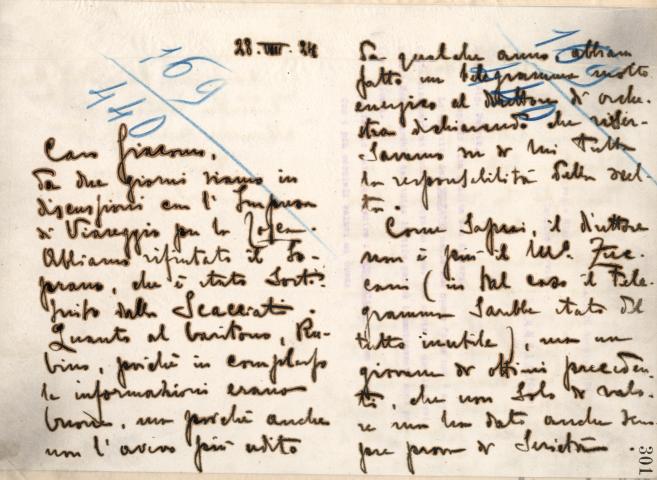 28.VIII.24
169
440
Caro Giacomo,
da due giorni siamo in
discussioni con l'Impresa
di Viareggio per la Tosca.
Abbiamo rifiutato il So-
prano, che è stato Sosti-
tuito dalla Scacciati.
Quanto al baritono, Ru-
bino, poichè in complesso
le informazioni erano
buone, ma poichè anche
non l'avevo più udito
da qualche anno, abbiam
fatto un telegramma molto
energico al direttore di orche-
stra dichiarando che river-
savamo su di lui tutta
la responsabilità della scel-
ta.
Come saprai, il direttore
non è più il M°. Zuc-
cani (in tal caso il tele-
gramma sarebbe stato del
tutto inutile), ma un
giovane di ottimi preceden-
ti, che non solo di valo-
re ma ha dato anche sem-
pre prova di serietà.
169
301